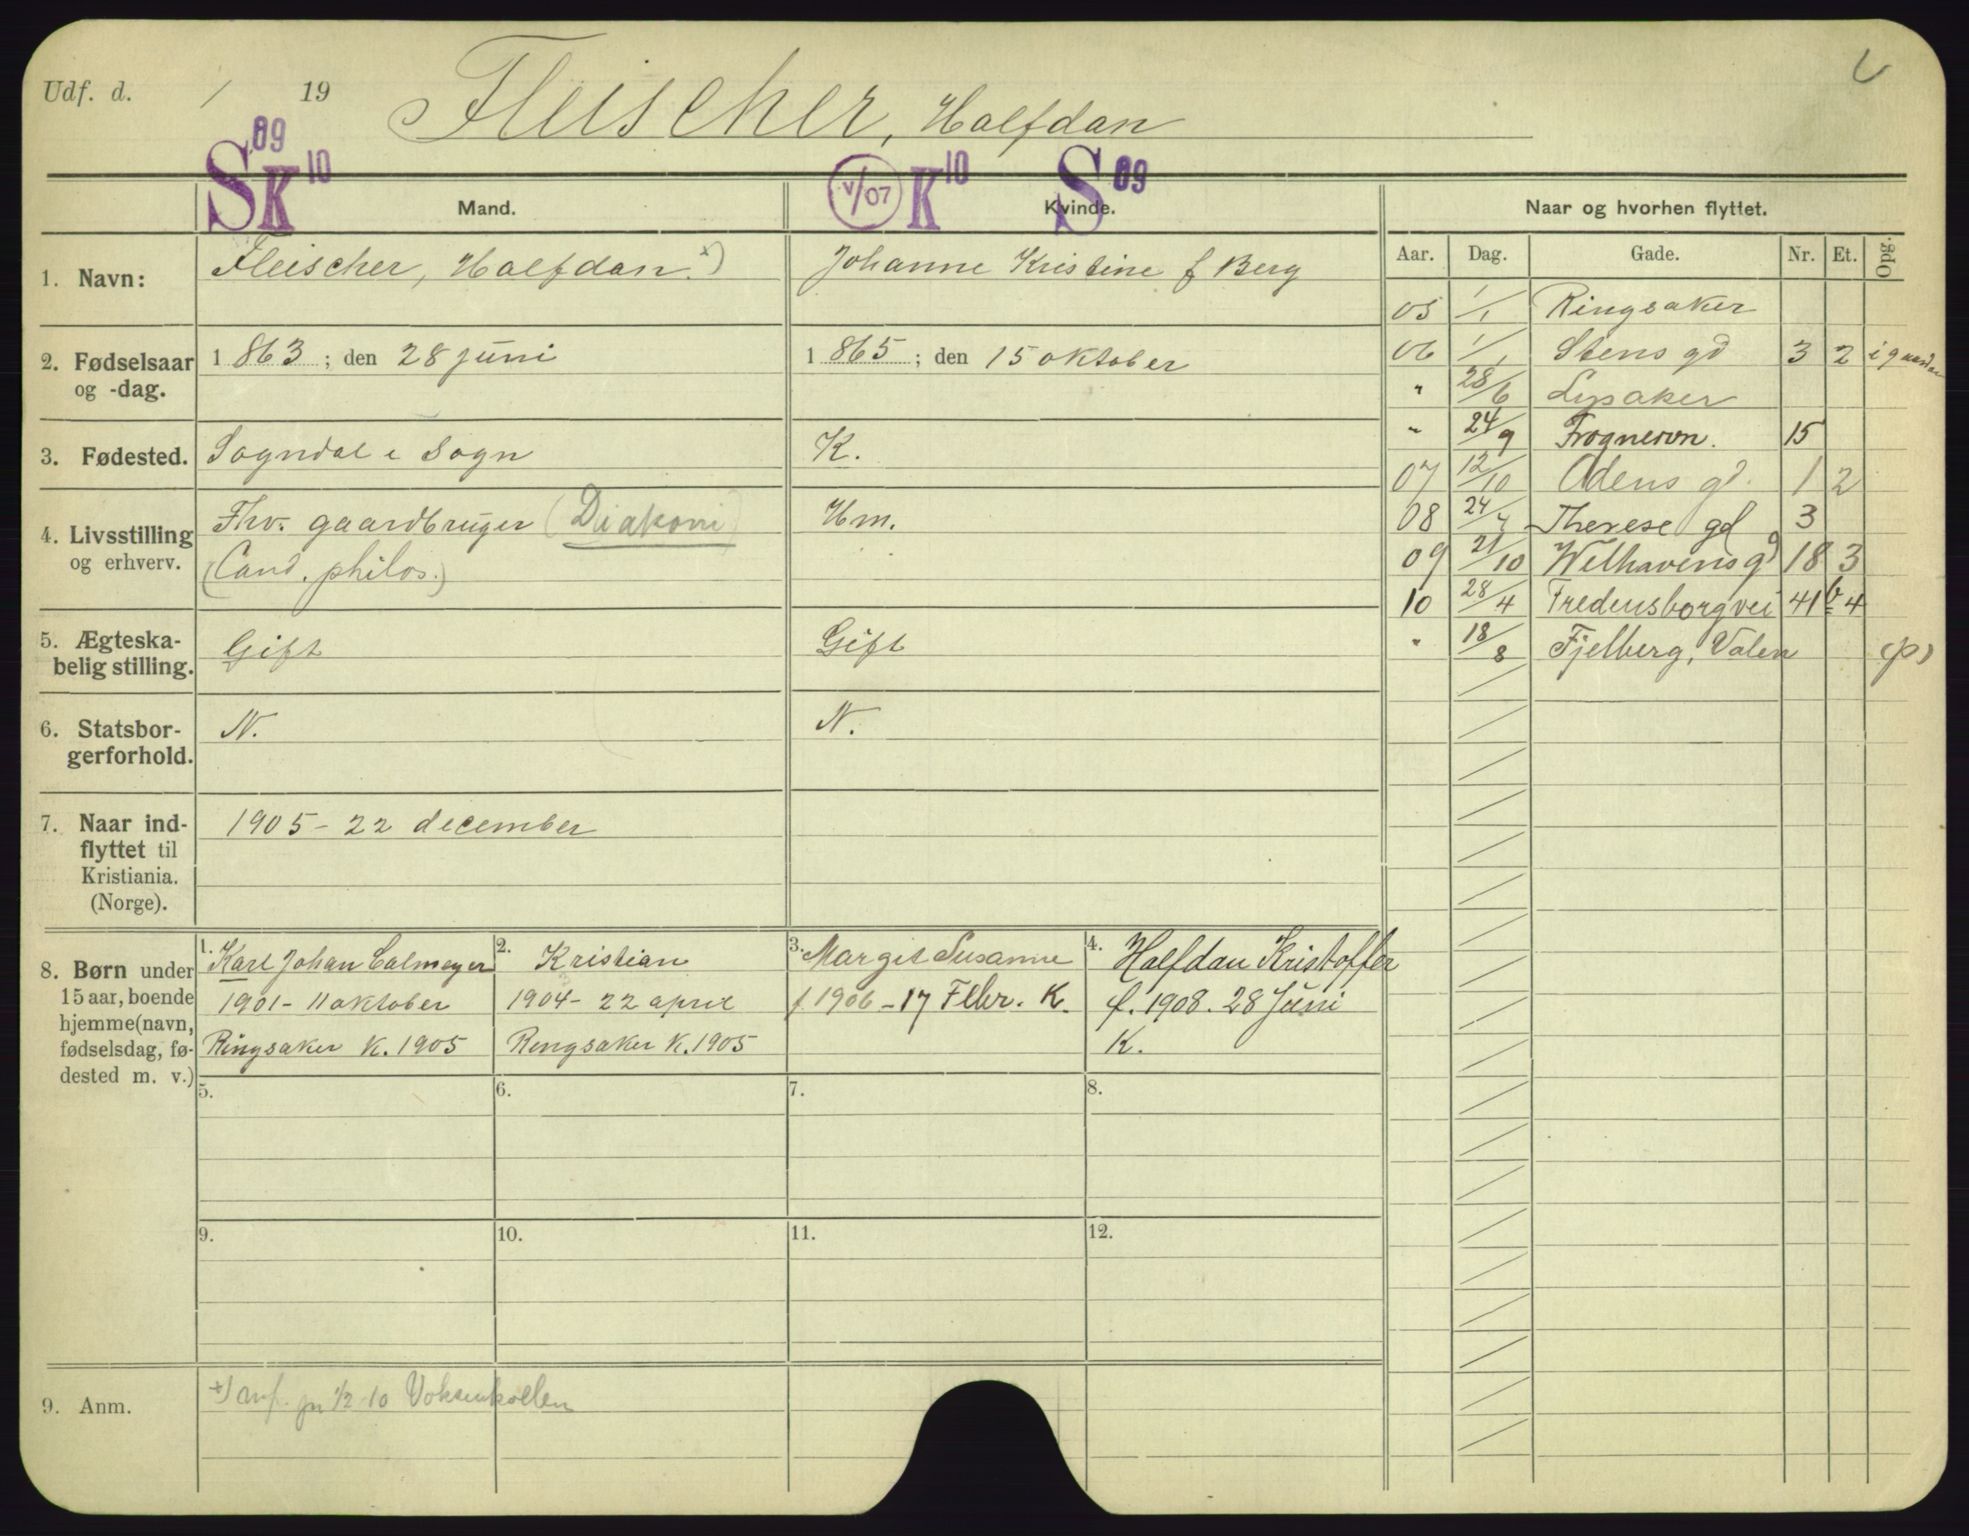 Udf. d. / 19 Fleischer, Halfdan
S 09 K 10 V/07 K 10 S 09
Mand. Kvinde. Naar og hvorhen flyttet.
Aar. Dag. Gade. Nr. Et. Opg.
1. Navn: Fleischer, Halfdan. *) Johanne Kristine f Berg
2. Fødselsaar 1863; den 28 juni 1865; den 15 oktober
og -dag.
3. Fødested. Sogndal i Sogn K.
4. Livsstilling Fhv. gaardbruger (Diakoni) Hm.
og erhverv. (Cand. philos.)
5. Ægteska- Gift Gift
belig stilling.
6. Statsbor- N. N.
gerforhold.
7. Naar ind- 1905 - 22 december
flyttet til
Kristiania.
(Norge).
05 1/1 Ringsaker
06 1/1 Stens gd 3 2 i gaarden
" 28/6 Lysaker
" 24/9 Frognervn. 15
07 12/10 Odens gd. 1 2
08 24/4 Therese gd 3
09 21/10 Welhavens gd 18 3
10 28/4 Fredensborgvei 41 b 4
" 18/8 Fjelberg, Valen (p)
8. Børn under
15 aar, boende
hjemme (navn,
fødselsdag, fø-
dested m. v.)
1. Karl Johan Calmeyer
1901 - 11 oktober
Ringsaker K. 1905
2. Kristian
1904 - 22 april
Ringsaker K. 1905
3. Margit Susanne
f 1906 - 17 Febr. K.
4. Halfdan Kristoffer
f. 1908. 28 Juni
K.
5. 6. 7. 8.
9. 10. 11. 12.
9. Anm. *) 1/2 10 Voksenkollen